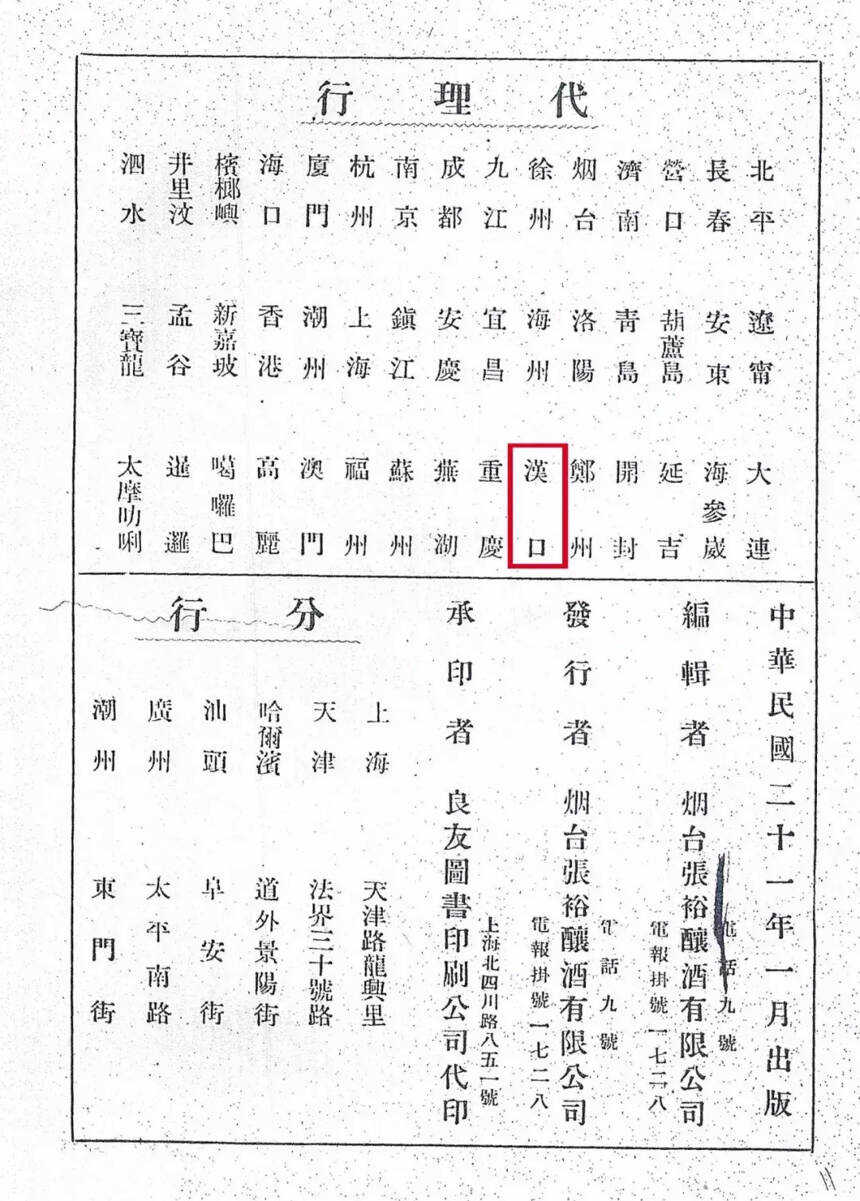 代理行
北平
長春
營口
濟南
烟台
徐州
九江
成都
南京
杭州
廈門
海口
檳榔嶼
井里汶
泗水
遼甯
安東
葫蘆島
青島
洛陽
海州
宜昌
安慶
鎭江
上海
潮州
香港
新嘉玻
孟谷
三寶龍
大連
海參崴
延吉
開封
鄭州
漢口
重慶
蕪湖
蘇州
福州
澳門
高麗
噶囉巴
暹邏
太摩叻唎
中華民國二十一年一月出版
編輯者 烟台張裕釀酒有限公司
電話九號
電報掛號一七二八
發行者 烟台張裕釀酒有限公司
電話九號
電報掛號一七二八
承印者 良友圖書印刷公司代印
上海北四川路八五一號
分行
上海 天津路龍興里
天津 法界三十號路
哈爾濱 道外景陽街
汕頭 阜安街
廣州 太平南路
潮州 東門街